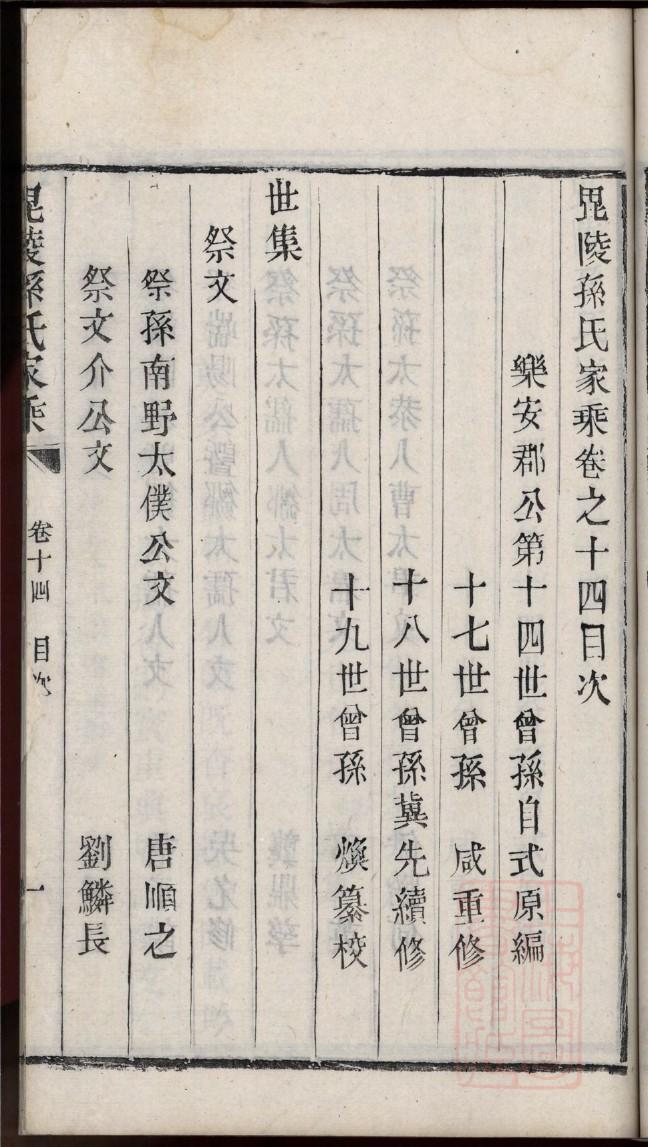 毘陵孫氏家乘卷之十四目次
樂安郡公第十四世曾孫自式原編
十七世曾孫 咸重修
十八世曾孫冀先續修
十九世曾孫 煥纂校
世集
祭文
祭孫南野太僕公文 唐順之
祭文介公文 劉鱗長
毘陵孫氏家乘 卷十四 目次 一